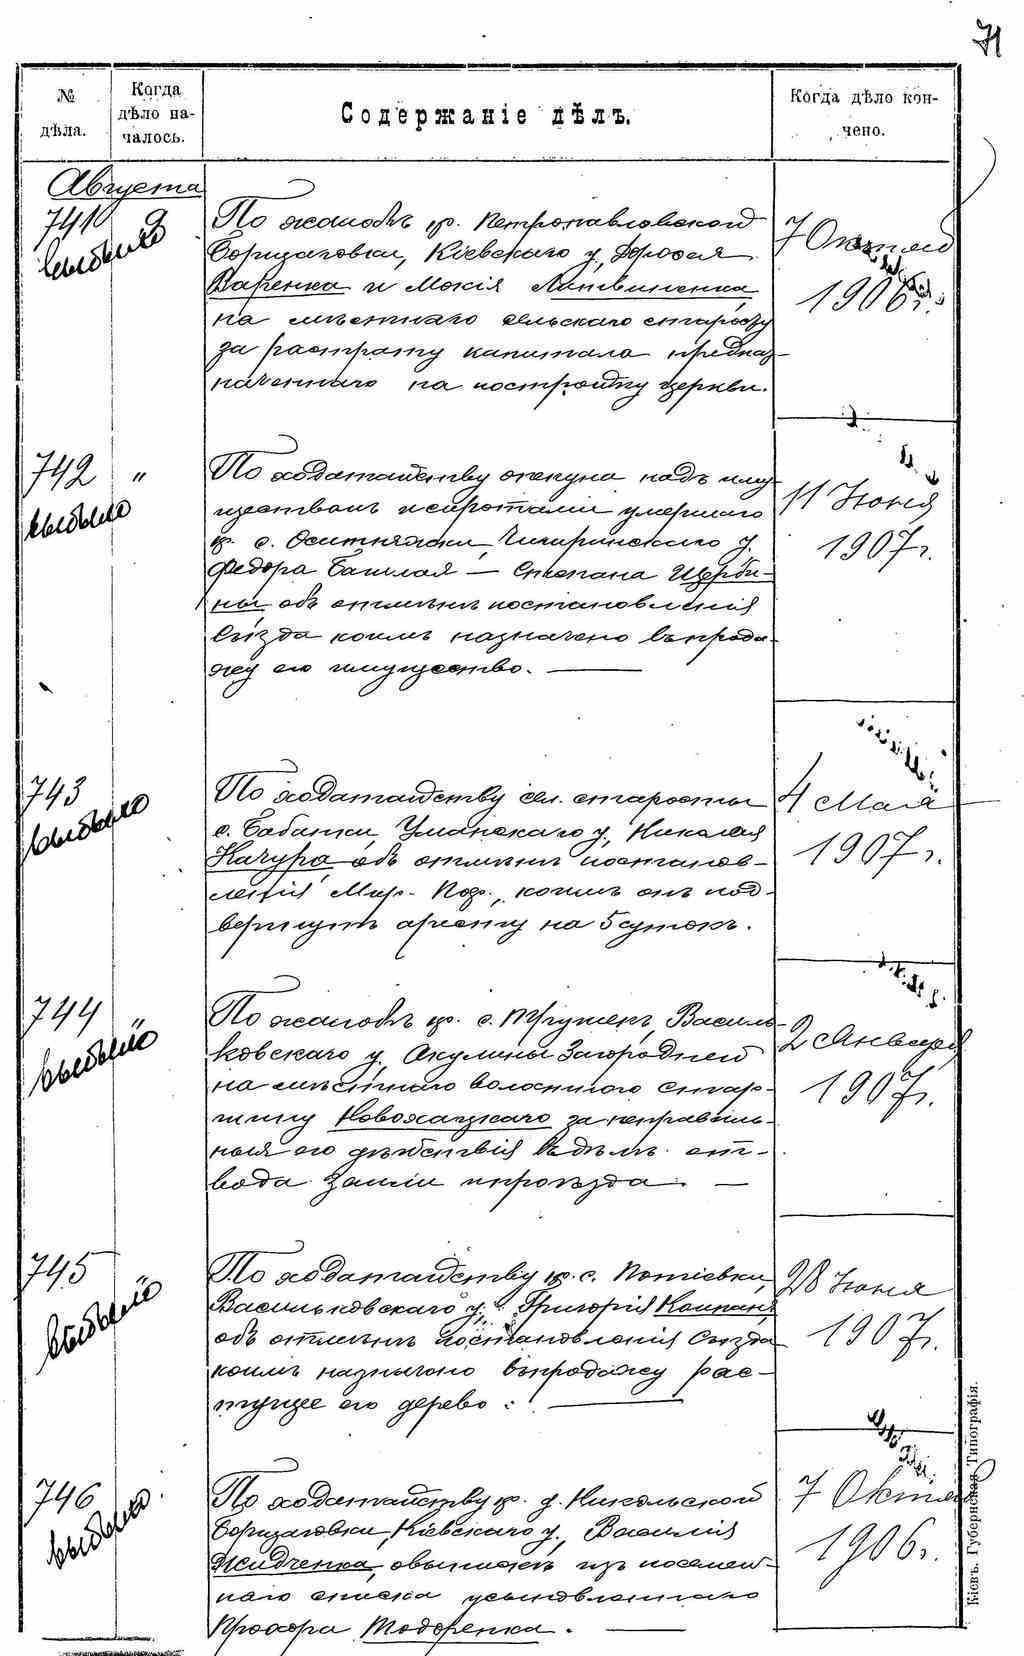 71
№ дѣла.
Когда дѣло на-
чалось.
Содержаніе дѣлъ.
Когда дѣло кон-
чено.
Августа
741 9
выбыло
По жалобѣ кр. Петропавловской
Борщаговки, Кіевскаго у, Дорофея
Варенка и Мокія Литвиненка,
на мѣстнаго сельскаго старосту
за растрату капитала предназ-
наченнаго на постройку церкви.
7 Октяб
1906 г.
742 "
выбыло
По ходатайству опекуна надъ иму-
ществомъ и сиротами умершаго
кр. с. Оситняжки, Чигиринскаго у.
Федора Башлая — Степана Щерби-
ны объ отмѣнѣ постановленія
Съѣзда коимъ назначено въ прода-
жу его имущество. —
11 Іюня
1907 г.
743
выбыло
По ходатайству сел. старосты
с. Бабанки, Уманскаго у, Николая
Качура, объ отмѣнѣ постанов-
ленія Мир. Пос., коимъ онъ под-
вергнутъ аресту на 5 сутокъ.
4 Мая
1907 г.
744 "
выбыло
По жалобѣ кр. с. Трушекъ, Василь-
ковскаго у, Акулины Загородней
на мѣстнаго волостного стар-
шину Новохацкаго за неправиль-
ныя его дѣйствія въ дѣлѣ от-
вода земли и проѣзда. —
2 Января
1907 г.
745 "
выбыло
По ходатайству кр. с. Потіевки,
Васильковскаго у, Григорія Компан,
объ отмѣнѣ постановленія Съѣзда
коимъ назначено въ продажу рас-
тущее его дерево. —
28 Іюня
1907 г.
746
выбыло
По ходатайству кр. д. Никольской
Борщаговки, Кіевскаго у, Василія
Жидченка, о выпискѣ изъ посемей-
наго списка усыновленнаго
Прохора Тодоренка. —
7 Октяб
1906 г.
Кіевъ. Губернская Типографія.